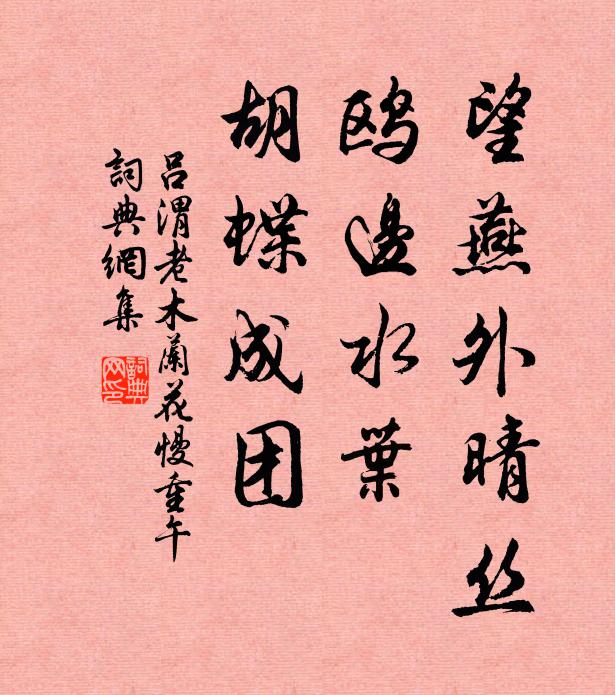 望燕外晴丝
鸥邊水葉
胡蝶成团
吕渭老木蘭花慢重午
詞典網集
詞典網印